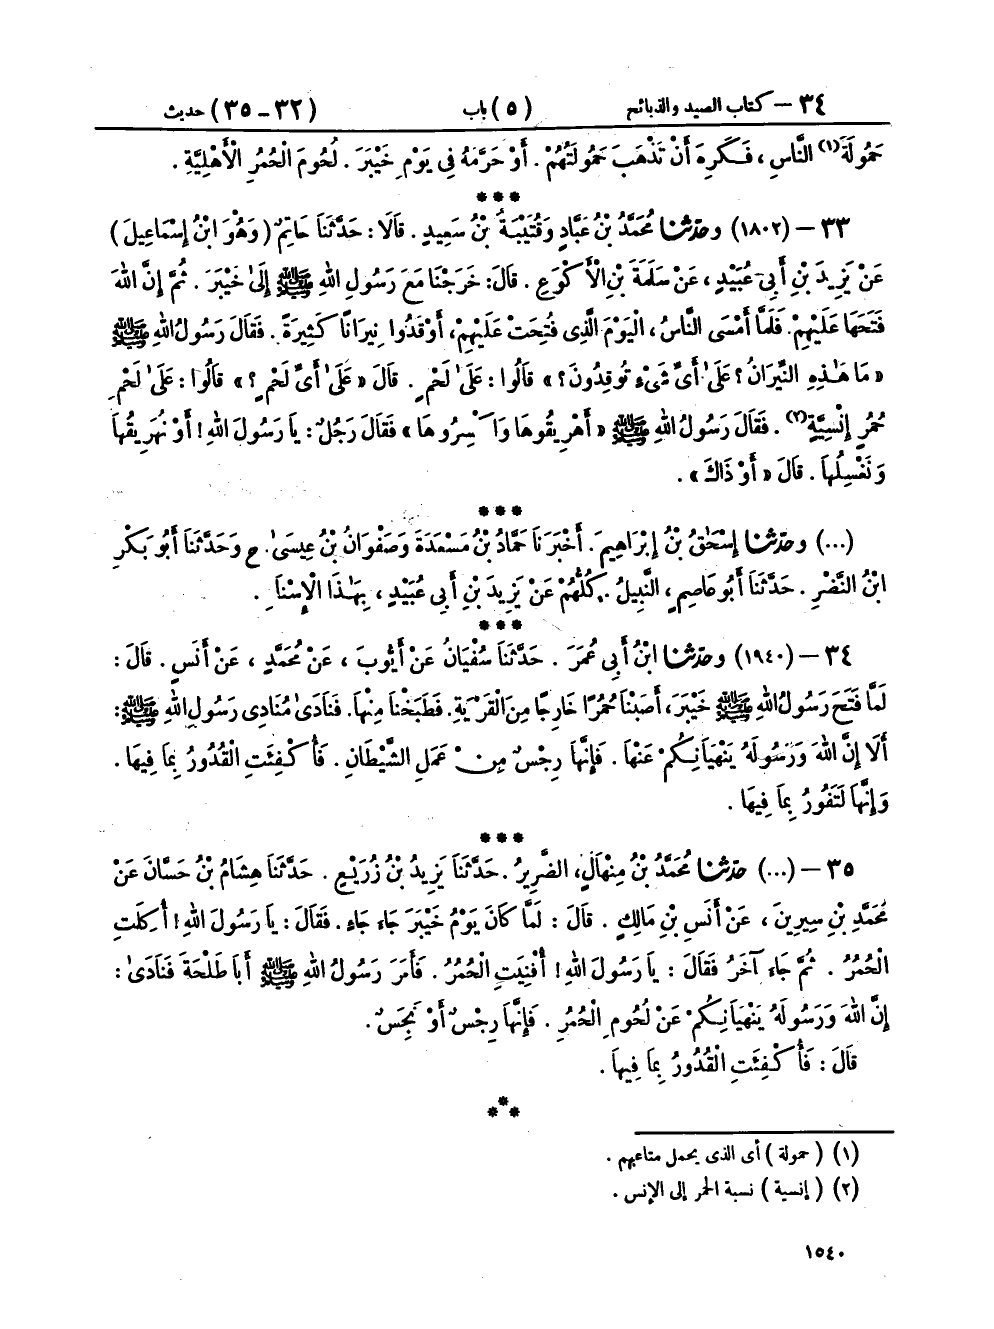 ٣٤ – كتاب الصيد والذبائح (٥) باب (٣٢ – ٣٥) حديث
حَمُولَةَ(١) النَّاسِ، فَكَرِهَ أَنْ تَذْهَبَ حَمُولَتُهُمْ. أَوْ حَرَّمَهُ فِى يَوْمِ خَيْبَرَ. لُحُومَ الْحُمُرِ الْأَهْلِيَّةِ.
***
٣٣ – (١٨٠٢) وحدثنا مُحَمَّدُ بْنُ عَبَّادٍ وَقُتَيْبَةُ بْنُ سَعِيدٍ. قَالَا: حَدَّثَنَا حَاتِمٌ (وَهُوَ ابْنُ إِسْمَاعِيلَ)
عَنْ يَزِيدَ بْنِ أَبِى عُبَيْدٍ، عَنْ سَلَمَةَ بْنِ الْأَكْوَعِ. قَالَ: خَرَجْنَا مَعَ رَسُولِ اللهِ ﷺ إِلَىٰ خَيْبَرَ. ثُمَّ إِنَّ اللهَ
فَتَحَهَا عَلَيْهِمْ. فَلَمَّا أَمْسَى النَّاسُ، الْيَوْمَ الَّذِى فُتِحَتْ عَلَيْهِمْ، أَوْقَدُوا نِيرَانًا كَثِيرَةً. فَقَالَ رَسُولُ اللهِ ﷺ
« مَا هَٰذِهِ النِّيرَانُ؟ عَلَىٰ أَىِّ شَىْءٍ تُوقِدُونَ؟ » قَالُوا: عَلَىٰ لَحْمٍ. قَالَ « عَلَىٰ أَىِّ لَحْمٍ؟ » قَالُوا: عَلَىٰ لَحْمِ
حُمُرٍ إِنْسِيَّةٍ(٢). فَقَالَ رَسُولُ اللهِ ﷺ « أَهْرِيقُوهَا وَاكْسِرُوهَا » فَقَالَ رَجُلٌ: يَا رَسُولَ اللهِ! أَوْ نُهَرِيقُهَا
وَنَغْسِلُهَا. قَالَ « أَوْ ذَاكَ ».
***
(...) وحدثنا إِسْحَٰقُ بْنُ إِبْرَاهِيمَ. أَخْبَرَنَا حَمَّادُ بْنُ مَسْعَدَةَ وَصَفْوَانُ بْنُ عِيسَىٰ. ح وَحَدَّثَنَا أَبُو بَكْرِ
ابْنُ النَّضْرِ. حَدَّثَنَا أَبُو عَاصِمٍ، النَّبِيلُ. كُلُّهُمْ عَنْ يَزِيدَ بْنِ أَبِى عُبَيْدٍ، بِهَٰذَا الْإِسْنَادِ.
***
٣٤ – (١٩٤٠) وحدثنا ابْنُ أَبِى عُمَرَ. حَدَّثَنَا سُفْيَانُ عَنْ أَيُّوبَ، عَنْ مُحَمَّدٍ، عَنْ أَنَسٍ. قَالَ:
لَمَّا فَتَحَ رَسُولُ اللهِ ﷺ خَيْبَرَ، أَصَبْنَا حُمُرًا خَارِجًا مِنَ الْقَرْيَةِ. فَطَبَخْنَا مِنْهَا. فَنَادَىٰ مُنَادِى رَسُولِ اللهِ ﷺ:
أَلَا إِنَّ اللهَ وَرَسُولَهُ يَنْهَيَانِكُمْ عَنْهَا. فَإِنَّهَا رِجْسٌ مِنْ عَمَلِ الشَّيْطَانِ. فَأُكْفِئَتِ الْقُدُورُ بِمَا فِيهَا.
وَإِنَّهَا لَتَفُورُ بِمَا فِيهَا.
***
٣٥ – (...) حدثنا مُحَمَّدُ بْنُ مِنْهَالٍ، الضَّرِيرُ. حَدَّثَنَا يَزِيدُ بْنُ زُرَيْعٍ. حَدَّثَنَا هِشَامُ بْنُ حَسَّانَ عَنْ
مُحَمَّدِ بْنِ سِيرِينَ، عَنْ أَنَسِ بْنِ مَالِكٍ. قَالَ: لَمَّا كَانَ يَوْمُ خَيْبَرَ جَاءَ جَاءٍ. فَقَالَ: يَا رَسُولَ اللهِ! أُكِلَتِ
الْحُمُرُ. ثُمَّ جَاءَ آخَرُ فَقَالَ: يَا رَسُولَ اللهِ! أُفْنِيَتِ الْحُمُرُ. فَأَمَرَ رَسُولُ اللهِ ﷺ أَبَا طَلْحَةَ فَنَادَىٰ:
إِنَّ اللهَ وَرَسُولَهُ يَنْهَيَانِكُمْ عَنْ لُحُومِ الْحُمُرِ. فَإِنَّهَا رِجْسٌ أَوْ نَجِسٌ.
قَالَ: فَأُكْفِئَتِ الْقُدُورُ بِمَا فِيهَا.
***
(١) (حمولة) أى الذى يحمل متاعهم.
(٢) (إنسية) نسبة الحمر إلى الإنس.
١٥٤٠